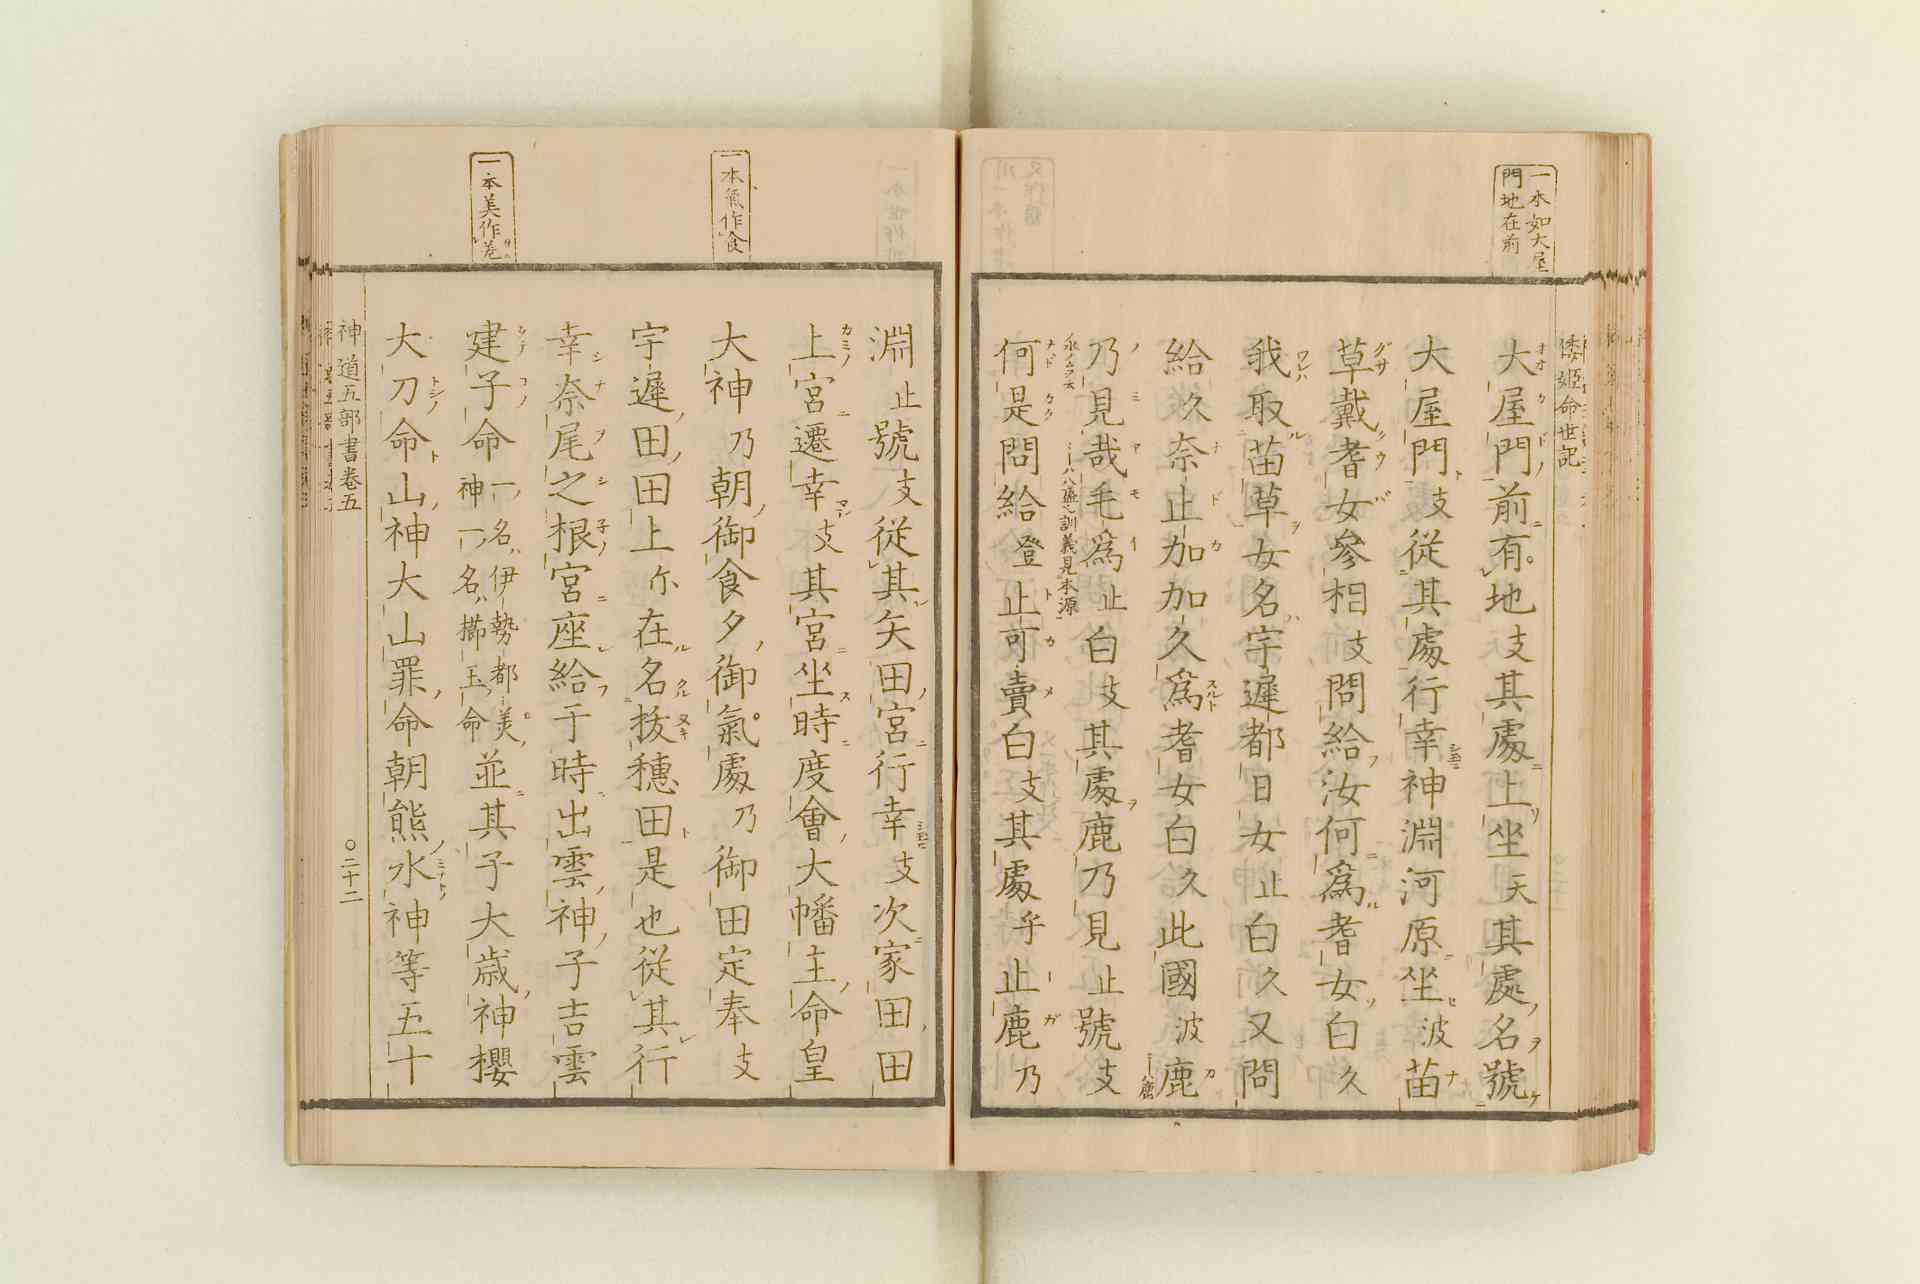 一本如大屋
門地在前
倭姫命世記
大屋門前有地支其處上坐天其處名號
大屋門支從其處行幸神淵河原坐波苗
草戴耆女參相支問給汝何爲耆女白久
我取苗草女名宇遲都日女止白久又問
給久奈止加加久爲耆女白久此國波鹿
乃見哉毛爲止白支其處鹿乃見止號支
何是問給登止可賣白支其處乎止鹿乃
淵止號支從其矢田宮行幸支次家田田
上宮遷幸支其宮坐時度會大幡主命皇
大神乃朝御食夕御氣處乃御田定奉支
宇遲田田上尓在名抜穗田是也從其行
幸奈尾之根宮座給于時出雲神子吉雲
建子命
一名伊勢都美
神一名櫛玉命
並其子大歳神櫻
大刀命山神大山罪命朝熊水神等五十
一本氣作食
一本美作巻
神道五部書卷五
〇二十二